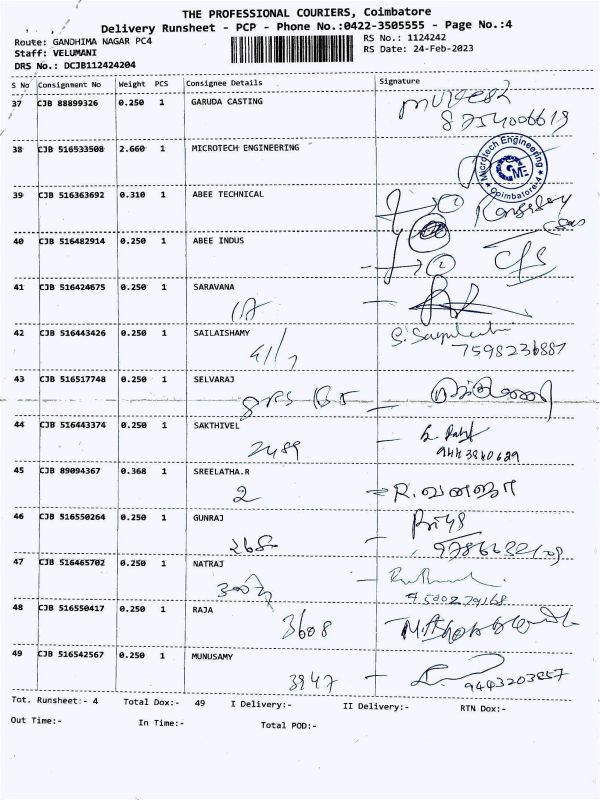 THE PROFESSIONAL COURIERS, Coimbatore
Delivery Runsheet - PCP - Phone No.:0422-3505555 - Page No.:4
Route: GANDHIMA NAGAR PC4
RS No.: 1124242
Staff: VELUMANI
RS Date: 24-Feb-2023
DRS No.: DCJB112424204
S No Consignment No Weight PCS Consignee Details Signature
37 CJB 88899326 0.250 1 GARUDA CASTING
8754006619
38 CJB 516533508 2.660 1 MICROTECH ENGINEERING
Microtech Engineering
ME
Coimbatore-4
39 CJB 516363692 0.310 1 ABEE TECHNICAL
40 CJB 516482914 0.250 1 ABEE INDUS
41 CJB 516424675 0.250 1 SARAVANA
42 CJB 516443426 0.250 1 SAILAISHAMY
7598236887
43 CJB 516517748 0.250 1 SELVARAJ
44 CJB 516443374 0.250 1 SAKTHIVEL
2489
9443840629
45 CJB 89094367 0.368 1 SREELATHA.R
2 R. வனஜா
46 CJB 516550264 0.250 1 GUNRAJ
268
47 CJB 516465702 0.250 1 NATRAJ
48 CJB 516550417 0.250 1 RAJA
3608
49 CJB 516542567 0.250 1 MUNUSAMY
3947 9443203657
Tot. Runsheet:- 4 Total Dox:- 49 I Delivery:- II Delivery:- RTN Dox:-
Out Time:- In Time:- Total POD:-